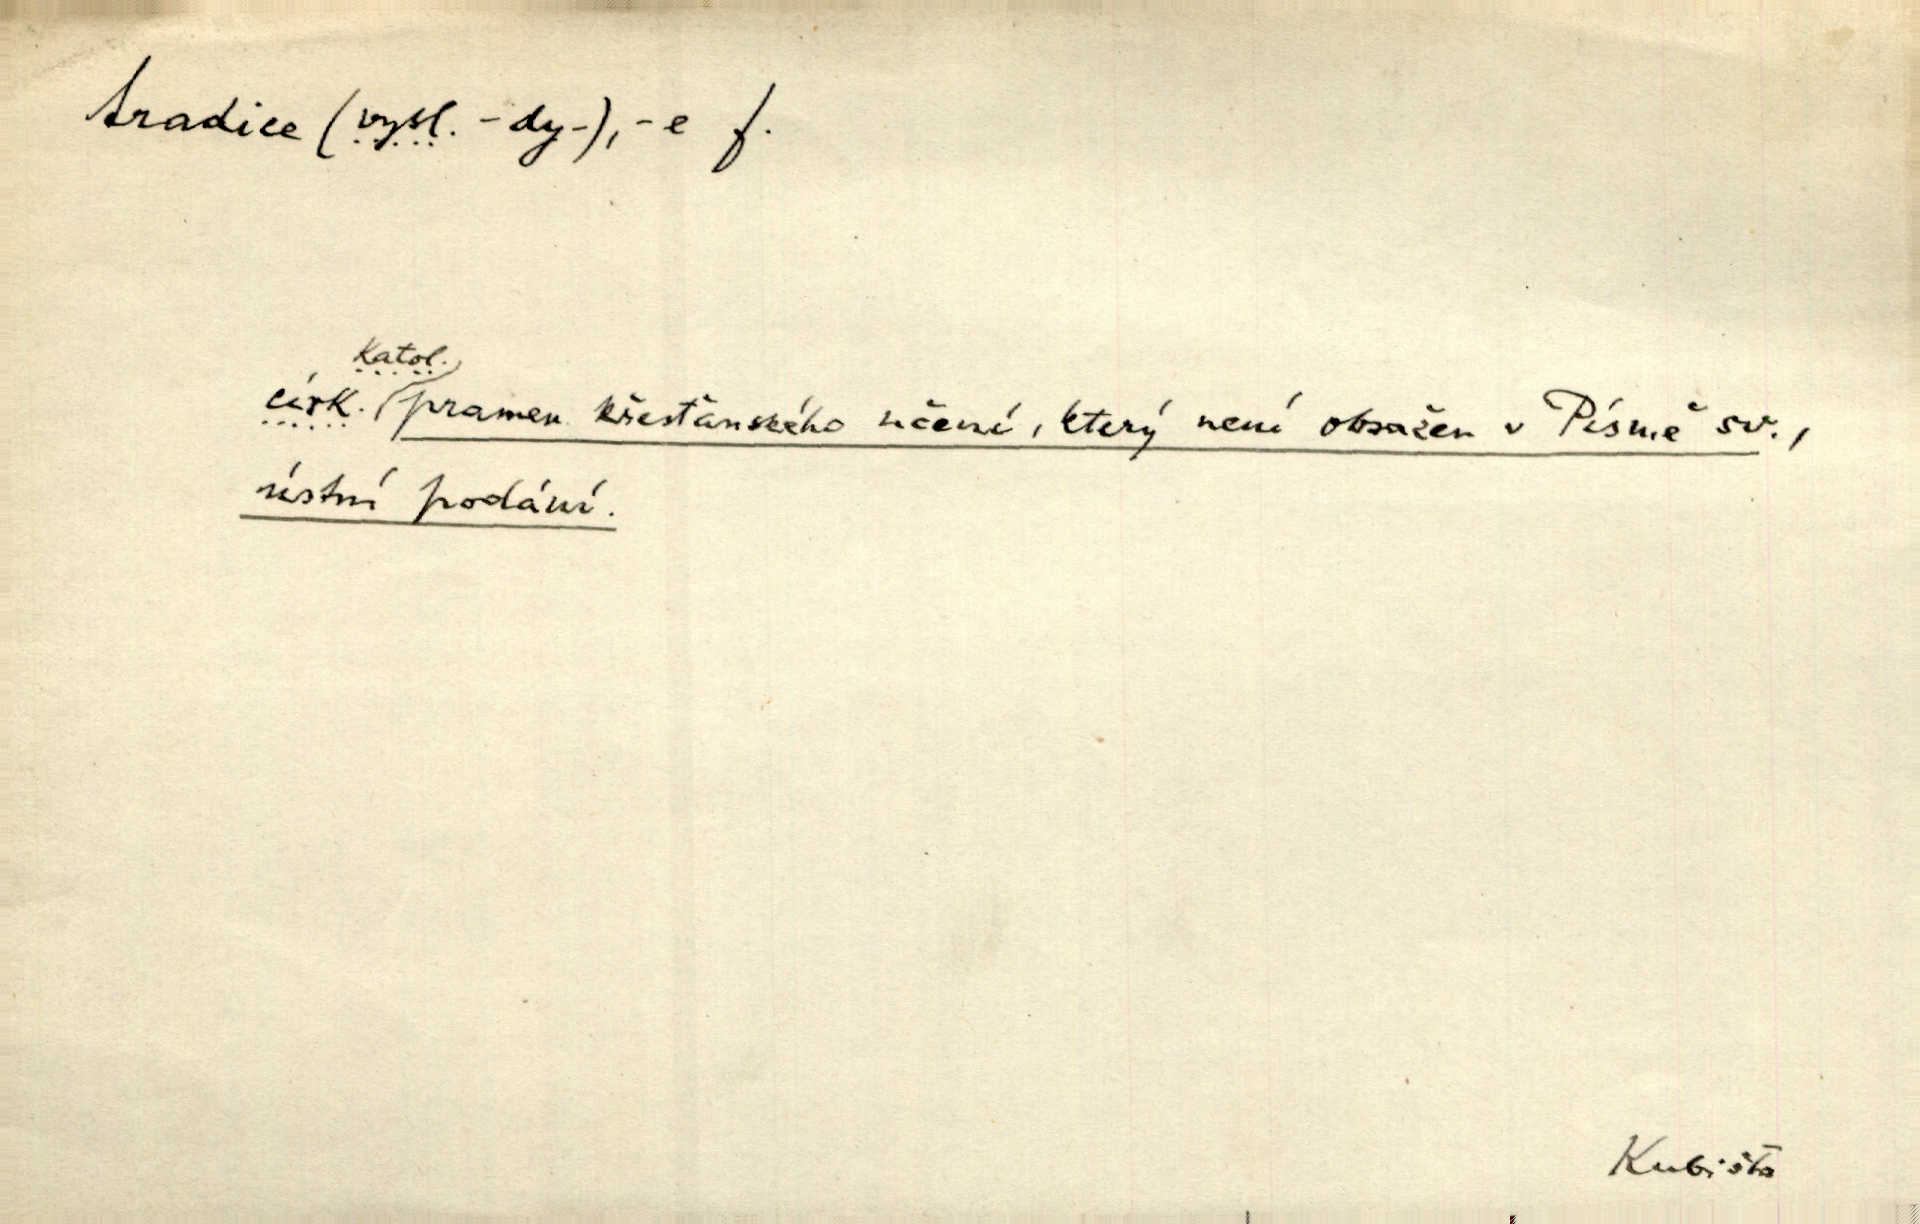 tradice (vysl. -dy-), -e f.
katol.
círk. pramen křesťanského učení, který není obsažen v Písmě sv.,
ústní podání.
Kubišta